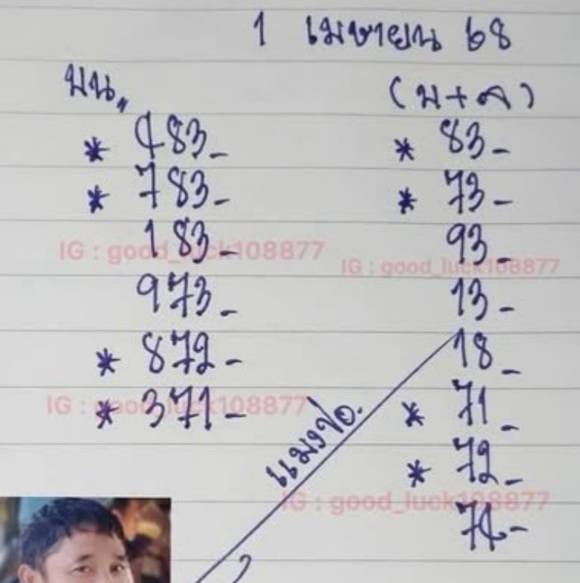 1 เมษายน 68
บน,,
* 483-
* 783-
183-
973-
* 872-
* 371-
(บ+ล)
* 83-
* 73-
93-
13-
18-
* 71-
* 72-
74-
แมงปอ.
IG : good_luck108877
IG : good_luck108877
IG : good_luck108877
IG : good_luck108877